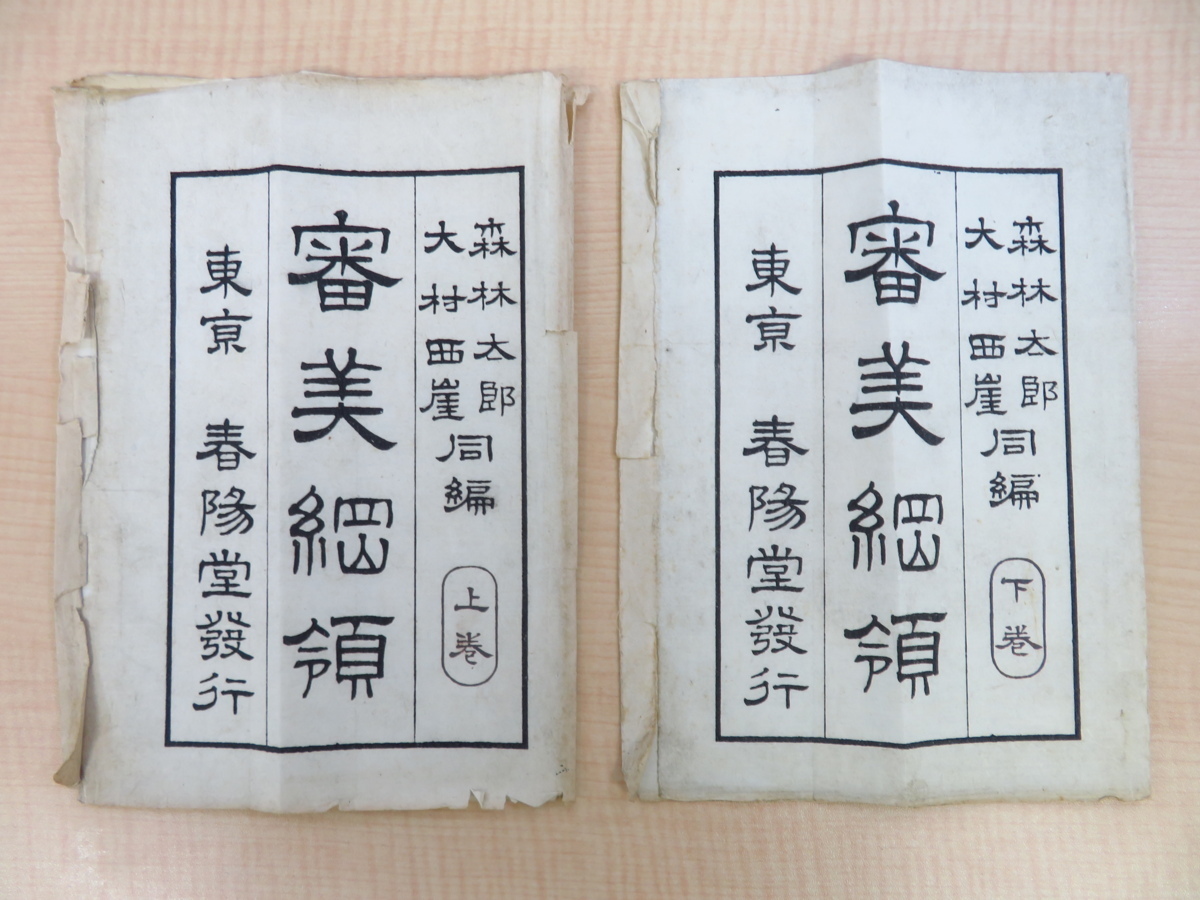 森林太郎
大村西崖同編
上卷
審美綱領
東亰 春陽堂發行
森林太郎
大村西崖同編
下卷
審美綱領
東亰 春陽堂發行